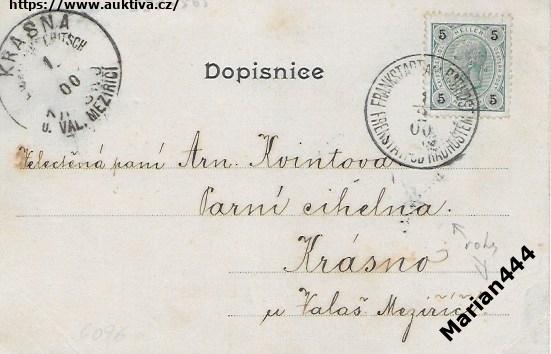 https://www.auktiva.cz/
KRASNA
1
00
u. VAL. MEZIŘÍČÍ
Dopisnice
5 HELLER 5
5 5
FRANKSTADT AM RADHOST
00
FRENŠTÁT POD RADHOŠTĚM
Velectěná paní Arn. Kvintova
Parní cihelna.
Krásno
u Valaš Meziříčí
rohy
6096
Marian444